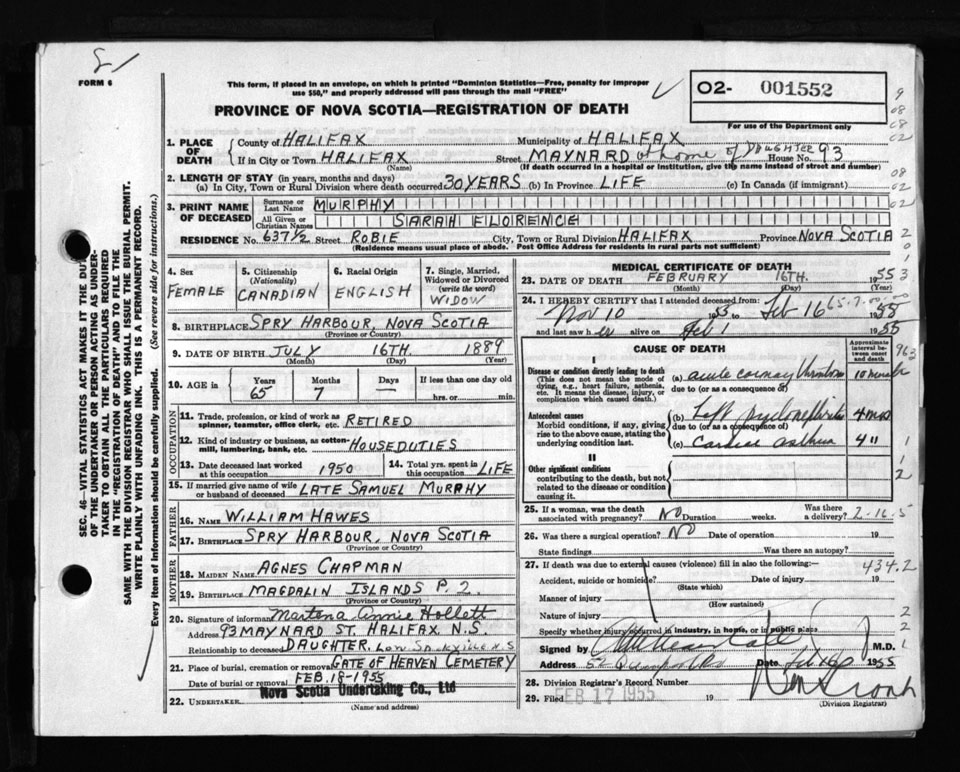 FORM 6
This form, if placed in an envelope, on which is printed "Dominion Statistics—Free, penalty for improper
use $50," and properly addressed will pass through the mail "FREE"
PROVINCE OF NOVA SCOTIA—REGISTRATION OF DEATH
O2- 001552
For use of the Department only
1. PLACE OF DEATH
County of HALIFAX Municipality of HALIFAX
If in City or Town HALIFAX Street MAYNARD at home of DAUGHTER House No. 93
(Name) (If death occurred in a hospital or institution, give the name instead of street and number)
2. LENGTH OF STAY (in years, months and days)
(a) In City, Town or Rural Division where death occurred 30 YEARS (b) In Province LIFE (c) In Canada (if immigrant)
3. PRINT NAME OF DECEASED
Surname or Last Name MURPHY
All Given or Christian Names SARAH FLORENCE
RESIDENCE No. 637½ Street ROBIE City, Town or Rural Division HALIFAX Province NOVA SCOTIA
(Residence means usual place of abode. Post Office Address for residents in rural parts not sufficient)
4. Sex FEMALE
5. Citizenship (Nationality) CANADIAN
6. Racial Origin ENGLISH
7. Single, Married, Widowed or Divorced (write the word) WIDOW
8. BIRTHPLACE SPRY HARBOUR, NOVA SCOTIA
(Province or Country)
9. DATE OF BIRTH JULY 16TH. 1889
(Month) (Day) (Year)
10. AGE in Years 65 Months 7 Days — If less than one day old
hrs. or min.
OCCUPATION
11. Trade, profession, or kind of work as
spinner, teamster, office clerk, etc. RETIRED
12. Kind of industry or business, as cotton-
mill, lumbering, bank, etc. HOUSEDUTIES
13. Date deceased last worked at this occupation 1950
14. Total yrs. spent in this occupation LIFE
15. If married give name of wife
or husband of deceased LATE SAMUEL MURPHY
FATHER
16. NAME WILLIAM HAWES
17. BIRTHPLACE SPRY HARBOUR, NOVA SCOTIA
(Province or Country)
MOTHER
18. MAIDEN NAME AGNES CHAPMAN
19. BIRTHPLACE MAGDALIN ISLANDS P.2.
(Province or Country)
20. Signature of informant Martena Annie Hollett
Address 93 MAYNARD ST. HALIFAX. N.S.
Relationship to deceased DAUGHTER
LOW SACKVILLE N.S
21. Place of burial, cremation or removal GATE OF HEAVEN CEMETERY
Date of burial or removal FEB. 18-1955
22. UNDERTAKER Nova Scotia Undertaking Co., Ltd
(Name and address)
MEDICAL CERTIFICATE OF DEATH
23. DATE OF DEATH FEBRUARY 16TH. 1955
(Month) (Day) (Year)
24. I HEREBY CERTIFY that I attended deceased from:
Nov 10 to Feb 16 1955
and last saw her alive on Feb 1 1955
CAUSE OF DEATH
Approximate interval between onset and death
I
Disease or condition directly leading to death
(This does not mean the mode of dying, e.g., heart failure, asthenia, etc. It means the disease, injury, or complication which caused death.)
(a) acute coronary thrombosis
due to (or as a consequence of)
Antecedent causes
Morbid conditions, if any, giving rise to the above cause, stating the underlying condition last.
(b) Left 4 mos
due to (or as a consequence of)
(c) cardiac asthma 4 "
II
Other significant conditions
contributing to the death, but not related to the disease or condition causing it.
25. If a woman, was the death
associated with pregnancy? NO Duration weeks. Was there a delivery?
2-16-5
26. Was there a surgical operation? NO Date of operation 19
State findings Was there an autopsy?
27. If death was due to external causes (violence) fill in also the following:—
434.2
Accident, suicide or homicide? Date of injury 19
(State which)
Manner of injury
(How sustained)
Nature of injury
Specify whether injury occurred in industry, in home, or in public place
Signed by M.D.
Address Date Feb 16 1955
28. Division Registrar's Record Number
29. Filed FEB 17 1955 19
(Division Registrar)
SEC. 46—VITAL STATISTICS ACT MAKES IT THE DUTY
OF THE UNDERTAKER OR PERSON ACTING AS UNDER-
TAKER TO OBTAIN ALL THE PARTICULARS REQUIRED
IN THE "REGISTRATION OF DEATH" AND TO FILE THE
SAME WITH THE DIVISION REGISTRAR WHO SHALL ISSUE THE BURIAL PERMIT.
WRITE PLAINLY WITH UNFADING INK. THIS IS A PERMANENT RECORD.
Every item of Information should be carefully supplied. (See reverse side for instructions.)